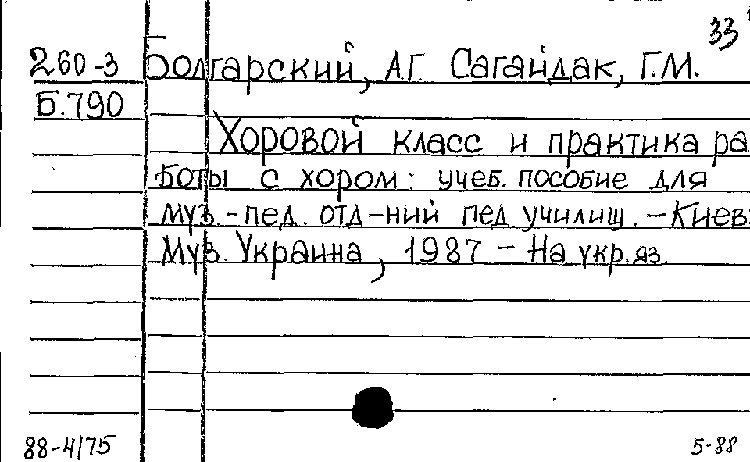 33
260-3 Болгарский, А.Г. Сагайдак, Г.М.
Б.790
Хоровой класс и практика ра
боты с хором: учеб. пособие для
муз.-пед. отд-ний пед училищ. - Киев:
Муз. Украина, 1987 - На укр. яз
88-4175 5-88